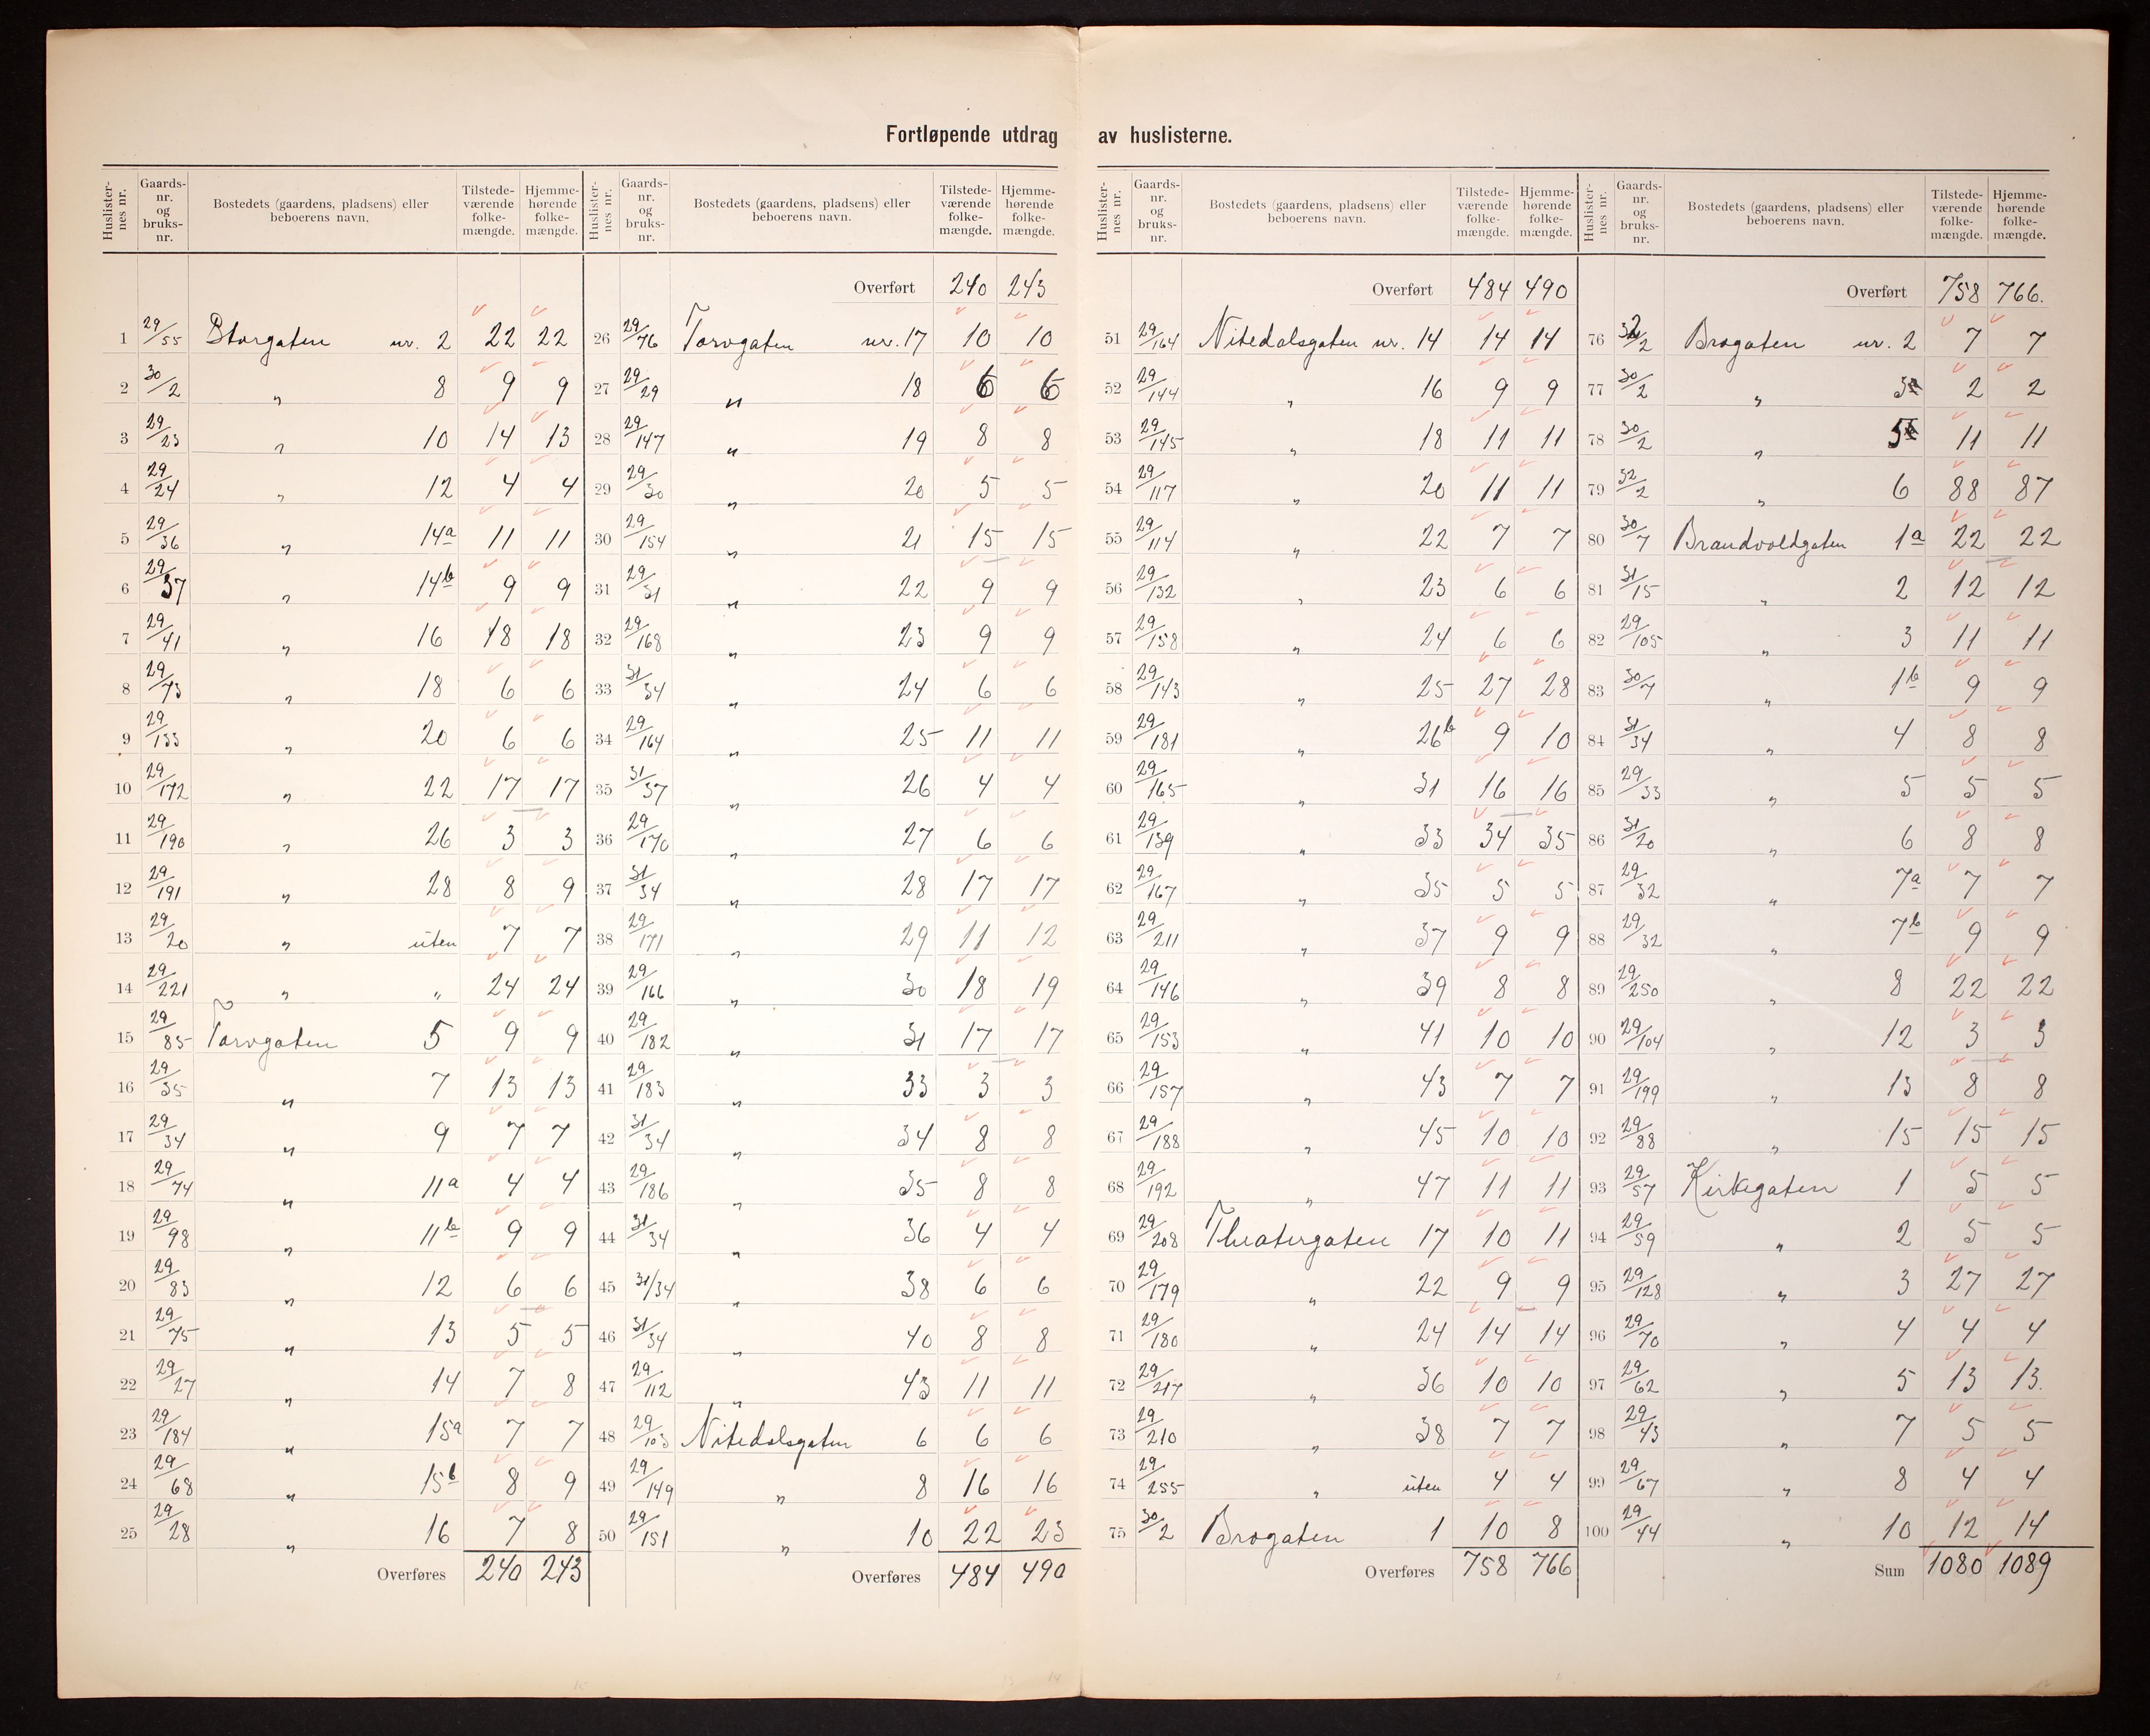 Fortløpende utdrag av huslisterne.
Huslister-nes nr. | Gaards-nr. og bruks-nr. | Bostedets (gaardens, pladsens) eller beboerens navn. | Tilstede-værende folke-mængde. | Hjemme-hørende folke-mængde.
1 29/55 Storgaten nr. 2 22 22
2 30/2 " 8 9 9
3 29/23 " 10 14 13
4 29/24 " 12 4 4
5 29/36 " 14a 11 11
6 29/37 " 14b 9 9
7 29/41 " 16 18 18
8 29/73 " 18 6 6
9 29/133 " 20 6 6
10 29/172 " 22 17 17
11 29/190 " 26 3 3
12 29/191 " 28 8 9
13 29/20 " uten 7 7
14 29/221 " " 24 24
15 29/85 Torvgaten 5 9 9
16 29/35 " 7 13 13
17 29/34 " 9 7 7
18 29/74 " 11a 4 4
19 29/98 " 11b 9 9
20 29/83 " 12 6 6
21 29/75 " 13 5 5
22 29/27 " 14 7 8
23 29/184 " 15a 7 7
24 29/68 " 15b 8 9
25 29/28 " 16 7 8
Overføres 240 243
Huslister-nes nr. | Gaards-nr. og bruks-nr. | Bostedets (gaardens, pladsens) eller beboerens navn. | Tilstede-værende folke-mængde. | Hjemme-hørende folke-mængde.
Overført 240 243
26 29/76 Torvgaten nr. 17 10 10
27 29/29 " 18 6 6
28 29/147 " 19 8 8
29 29/30 " 20 5 5
30 29/154 " 21 15 15
31 29/31 " 22 9 9
32 29/168 " 23 9 9
33 31/34 " 24 6 6
34 29/164 " 25 11 11
35 31/37 " 26 4 4
36 29/170 " 27 6 6
37 31/34 " 28 17 17
38 29/171 " 29 11 12
39 29/166 " 30 18 19
40 29/182 " 31 17 17
41 29/183 " 33 3 3
42 31/34 " 34 8 8
43 29/186 " 35 8 8
44 31/34 " 36 4 4
45 31/34 " 38 6 6
46 31/34 " 40 8 8
47 29/112 " 43 11 11
48 29/103 Nitedalsgaten 6 6 6
49 29/149 " 8 16 16
50 29/151 " 10 22 23
Overføres 484 490
Huslister-nes nr. | Gaards-nr. og bruks-nr. | Bostedets (gaardens, pladsens) eller beboerens navn. | Tilstede-værende folke-mængde. | Hjemme-hørende folke-mængde.
Overført 484 490
51 29/164 Nitedalsgaten nr. 14 14 14
52 29/144 " 16 9 9
53 29/145 " 18 11 11
54 29/117 " 20 11 11
55 29/114 " 22 7 7
56 29/132 " 23 6 6
57 29/158 " 24 6 6
58 29/143 " 25 27 28
59 29/181 " 26b 9 10
60 29/165 " 31 16 16
61 29/139 " 33 34 35
62 29/167 " 35 5 5
63 29/211 " 37 9 9
64 29/146 " 39 8 8
65 29/153 " 41 10 10
66 29/157 " 43 7 7
67 29/188 " 45 10 10
68 29/192 " 47 11 11
69 29/208 Theatergaten 17 10 11
70 29/179 " 22 9 9
71 29/180 " 24 14 14
72 29/217 " 36 10 10
73 29/210 " 38 7 7
74 29/255 " uten 4 4
75 30/2 Brogaten 1 10 8
Overføres 758 766
Huslister-nes nr. | Gaards-nr. og bruks-nr. | Bostedets (gaardens, pladsens) eller beboerens navn. | Tilstede-værende folke-mængde. | Hjemme-hørende folke-mængde.
Overført 758 766.
76 32/2 Brogaten nr. 2 7 7
77 30/2 " 3 2 2
78 30/2 " 5 11 11
79 32/2 " 6 88 87
80 30/7 Brandvoldgaten 1a 22 22
81 31/15 " 2 12 12
82 29/105 " 3 11 11
83 30/7 " 1b 9 9
84 31/34 " 4 8 8
85 29/33 " 5 5 5
86 31/20 " 6 8 8
87 29/32 " 7a 7 7
88 29/32 " 7b 9 9
89 29/250 " 8 22 22
90 29/104 " 12 3 3
91 29/199 " 13 8 8
92 29/88 " 15 15 15
93 29/57 Kirkegaten 1 5 5
94 29/59 " 2 5 5
95 29/128 " 3 27 27
96 29/70 " 4 4 4
97 29/62 " 5 13 13.
98 29/43 " 7 5 5
99 29/67 " 8 4 4
100 29/44 " 10 12 14
Sum 1080 1089